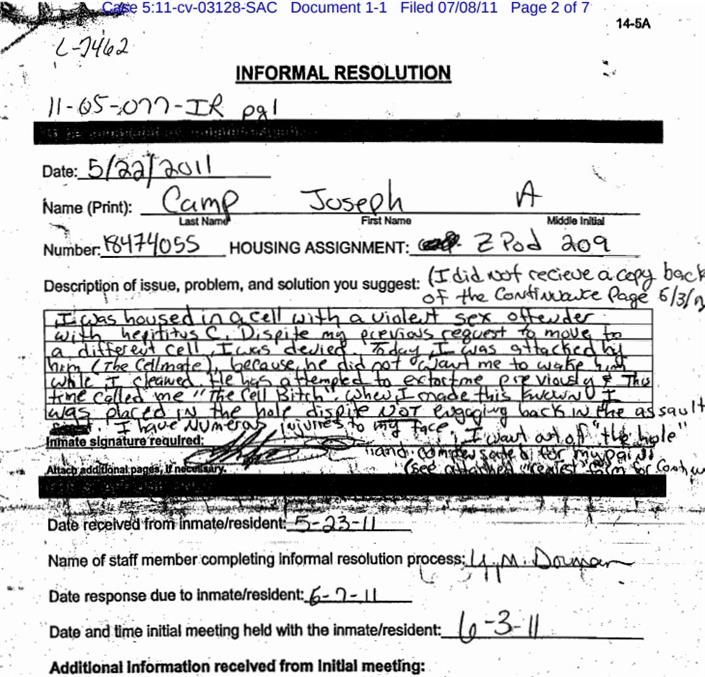 Case 5:11-cv-03128-SAC Document 1-1 Filed 07/08/11 Page 2 of 7
14-5A
L-7462
INFORMAL RESOLUTION
11-05-077-IR pg1
Date: 5/22/2011
Name (Print): Camp Joseph A
Last Name First Name Middle Initial
Number: 18474055 HOUSING ASSIGNMENT: Z Pod 209
Description of issue, problem, and solution you suggest: (I did not recieve a copy back
of the Continuance Page 6/3/11
I was housed in a cell with a violent sex offender
with hepititus C. Dispite my previous request to move to
a different cell, I was denied. Today I was attacked by
him (The Cellmate), because he did not want me to wake him
while I cleaned. He has attempted to extort me previously & This
time called me "The Cell Bitch". When I made this known I
was placed in the hole dispite NOT engaging back in the assault
. I have Numeras injuires to my face. I want out of "the hole"
Inmate signature required:
and compensated for my pain
Attach additional pages, if necessary. (see attached "request" form for
Date received from inmate/resident: 5-23-11
Name of staff member completing informal resolution process: M. Dorman
Date response due to inmate/resident: 6-7-11
Date and time initial meeting held with the inmate/resident: 6-3-11
Additional Information received from Initial meeting: